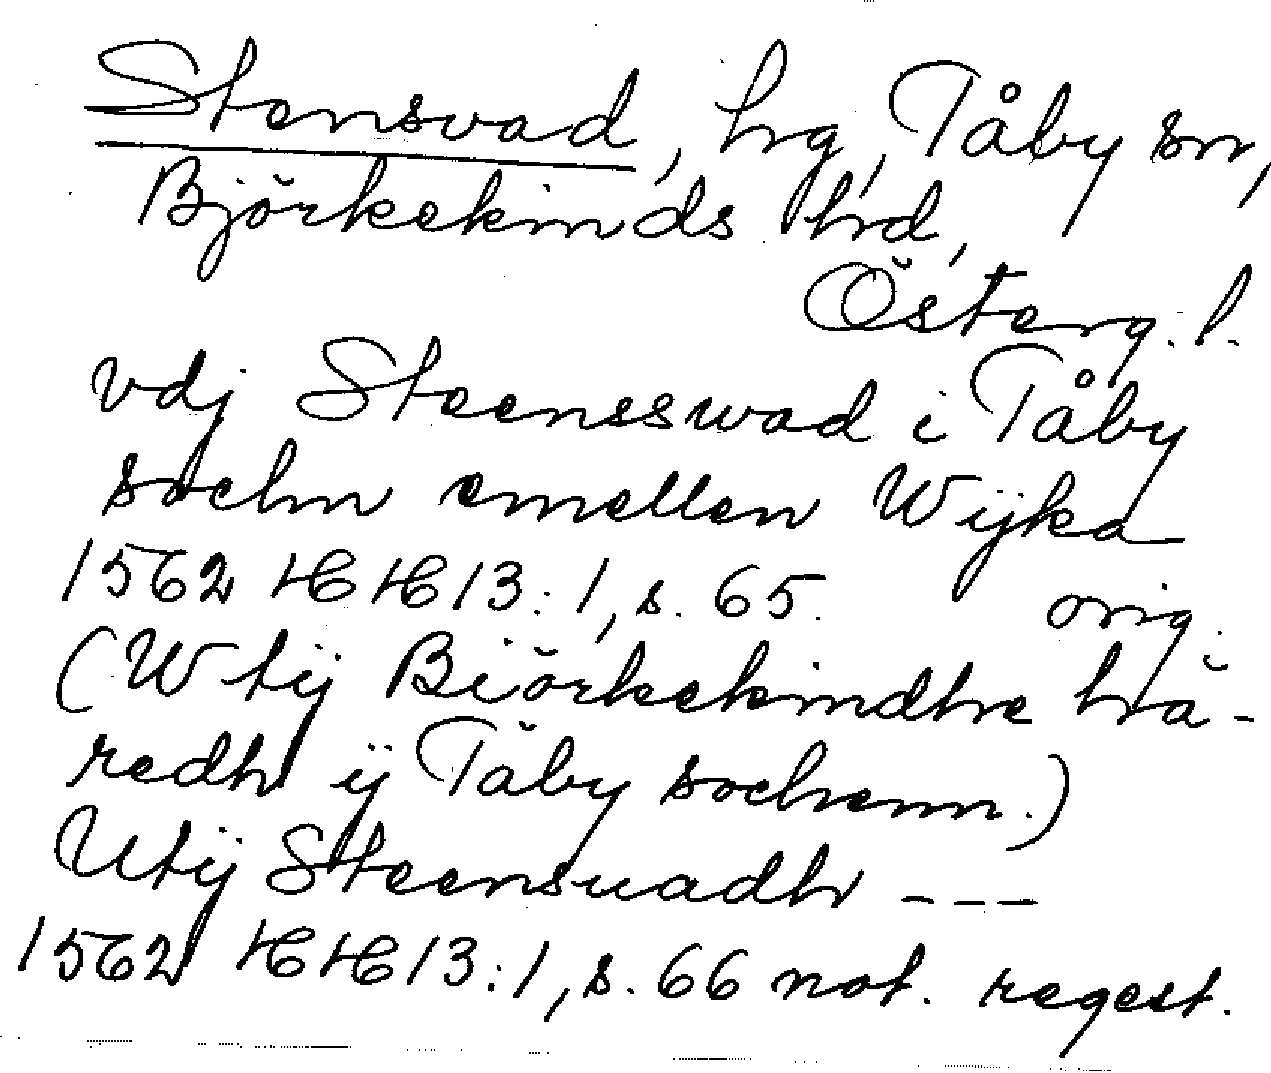 Stensvad, hrg, Tåby sn,
Björkekinds hrd,
Österg. l.
vdj Steensswad i Tåby
sochn emellen Wijka
1562 HH 13:1, s. 65. orig.
(Wtij Biörkekindhe hä-
redh ij Tåby sochenn.)
Utij Steensuadh ---
1562 HH 13:1, s. 66 not. regest.